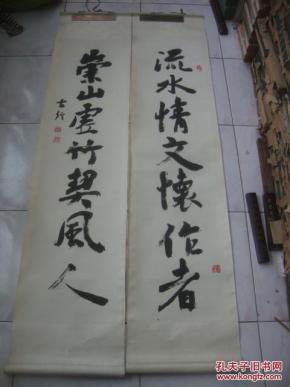 流水情文懷作者
崇山虛竹契風人
孔夫子旧书网
www.kongfz.com